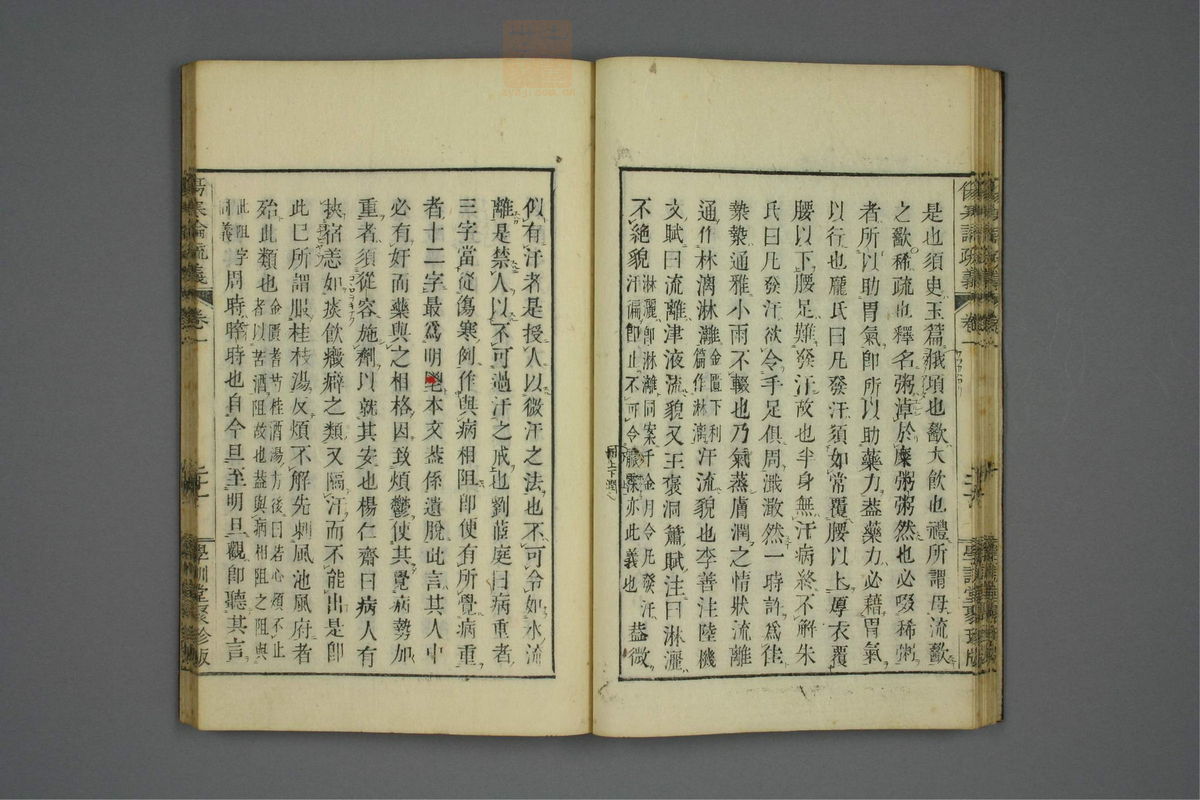 是也須臾玉篇俄頃也歠大飲也禮所謂毋流歠
之歠稀疏也釋名粥淖於糜粥粥然也必啜稀粥
者所以助胃氣卽所以助藥力葢藥力必藉胃氣
以行也龐氏曰凡發汗須如常覆腰以上厚衣覆
腰以下腰足難發汗故也半身無汗病終不解朱
氏曰凡發汗欲令手足俱周濈濈然一時許爲佳
漐漐通雅小雨不輟也乃氣蒸膚潤之情狀流離
通作林漓淋灕金匱下利篇作淋漓汗流貌也李善注陸機
文賦曰流離津液流貌又王褒洞簫賦注曰淋灑
不絶貌淋灑卽淋離同案千金月令凡發汗汗徧卽止不可令亦此義也葢微
同上下潤
似有汗者是授人以微汗之法也不可令如水流
離是禁人以不可過汗之戒也劉茝庭曰病重者
三字當從傷寒例作與病相阻卽使有所覺病重
者十二字最爲明鬯本文葢係遺脫此言其人中
必有奸而藥與之相格因致煩鬱使其覺病勢加
重者須從容施劑以就其安也楊仁齋曰病人有
挾宿恙如痰飲癥癖之類又隔汗而不能出是卽
此已所謂服桂枝湯反煩不解先刺風池風府者
殆此類也金匱耆芍桂酒湯方後曰若心煩不止者以苦酒阻故也葢與病相阻之阻與
此阻字同義周時晬時也自今旦至明旦觀卽聽其言
傷寒論疏義
卷一
學訓堂聚珍版
傷寒論疏義
卷一
學訓堂聚珍版